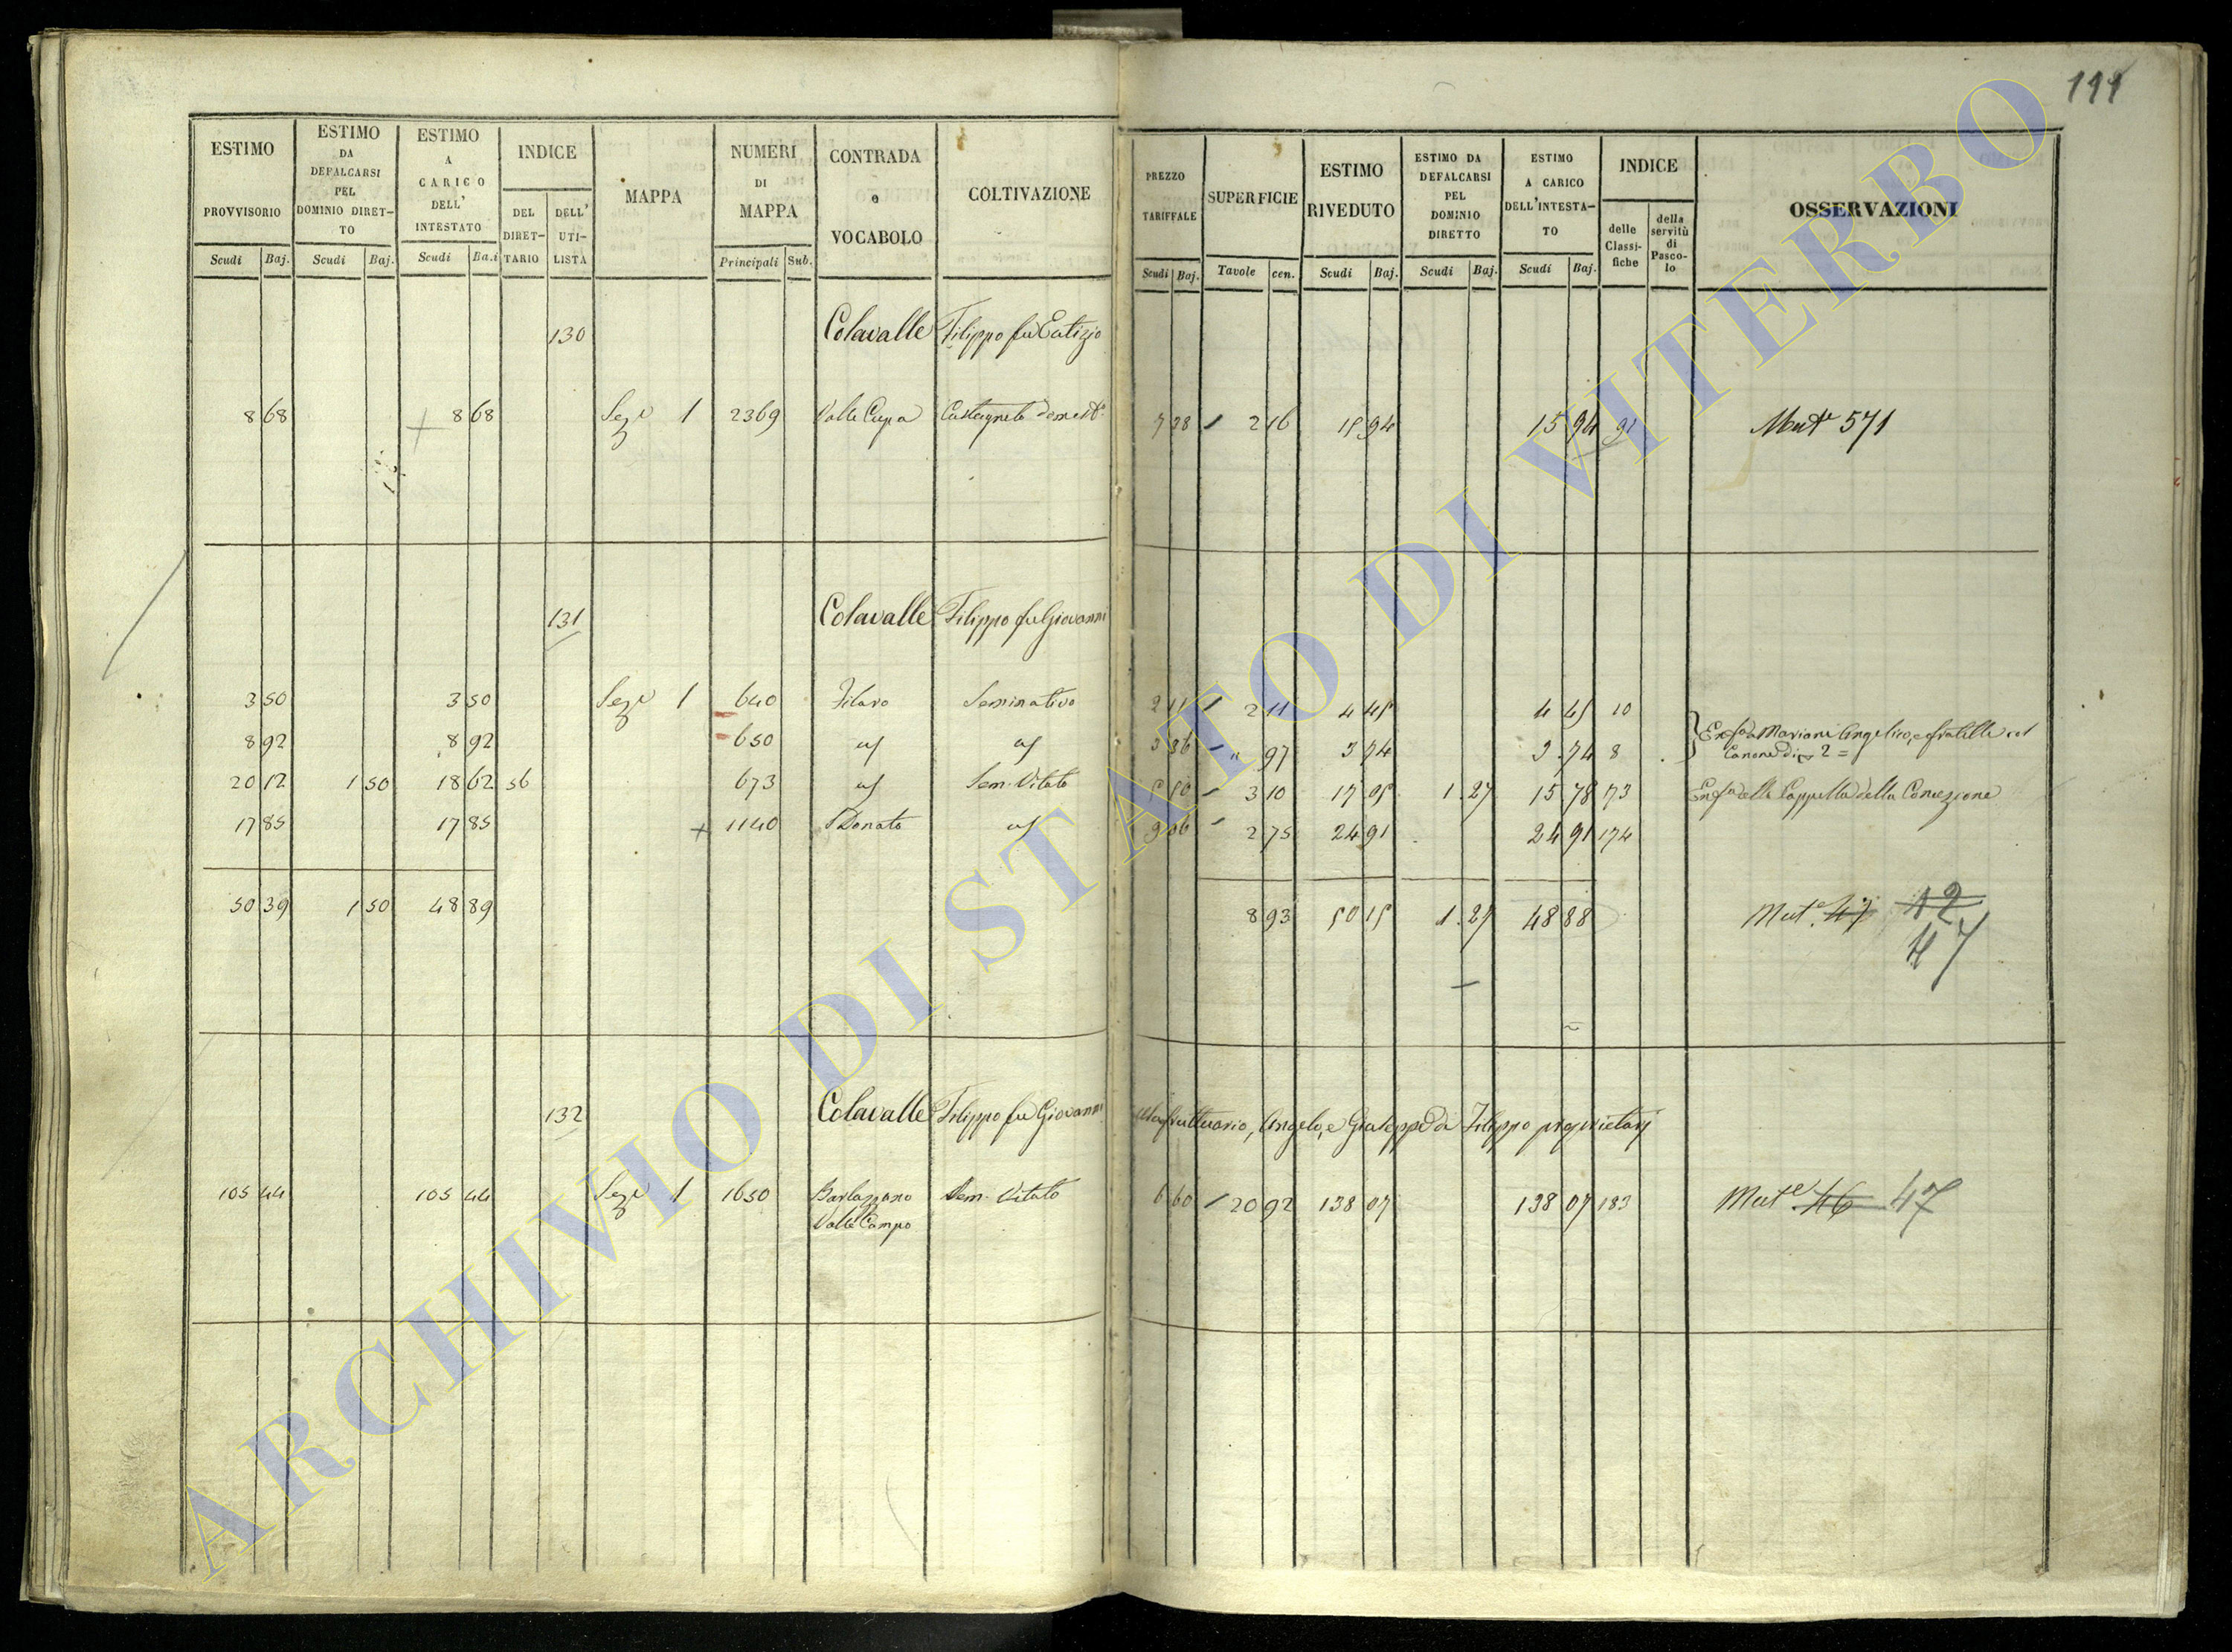 111
ESTIMO PROVVISORIO
ESTIMO DA DEFALCARSI PEL DOMINIO DIRET-TO
ESTIMO A CARICO DELL' INTESTATO
INDICE
DEL DIRET-TARIO
DELL' UTI-LISTA
MAPPA
NUMERI DI MAPPA
CONTRADA e VOCABOLO
COLTIVAZIONE
PREZZO TARIFFALE
SUPERFICIE
ESTIMO RIVEDUTO
ESTIMO DA DEFALCARSI PEL DOMINIO DIRETTO
ESTIMO A CARICO DELL'INTESTA-TO
INDICE
delle Classi-fiche
della servitù di Pasco-lo
OSSERVAZIONI
Scudi Baj. Scudi Baj. Scudi Ba.i Principali Sub.
Scudi Baj. Tavole cen. Scudi Baj. Scudi Baj. Scudi Baj.
130 Colavalle Filippo fu Eutizio
8 68 + 8 68 Sez.e 1 2369 Valle Cupa Castagneto domest.o 7 28 2 16 15 94 15 94 91 Mut.e 571
131 Colavalle Filippo fu Giovanni
3 50 3 50 Sez.e 1 640 Filaro Seminativo 2 11 2 11 4 45 4 45 10
8 92 8 92 650 " 97 3 74 3 74 8
Mariani Angelico, e fratelli col
Canone di 2 =
20 12 1 50 18 62 56 673 Sem. Vitato 5 50 3 10 17 05 1 27 15 78 173 della Cappella della Concezione
17 85 17 85 + 1140 S Donato 9 06 2 75 24 91 24 91 174
50 39 1 50 48 89 8 93 50 15 1 27 48 88 Mut.e 47 12
47
132 Colavalle Filippo fu Giovanni usufruttuario, Angelo, e Giuseppe di Filippo proprietarj
105 44 105 44 Sez.e 1 1650 Barlazzano Sem. Vitato 6 60 20 92 138 07 138 07 183 Mut.e 46 47
Valle Campo
ARCHIVIO DI STATO DI VITERBO